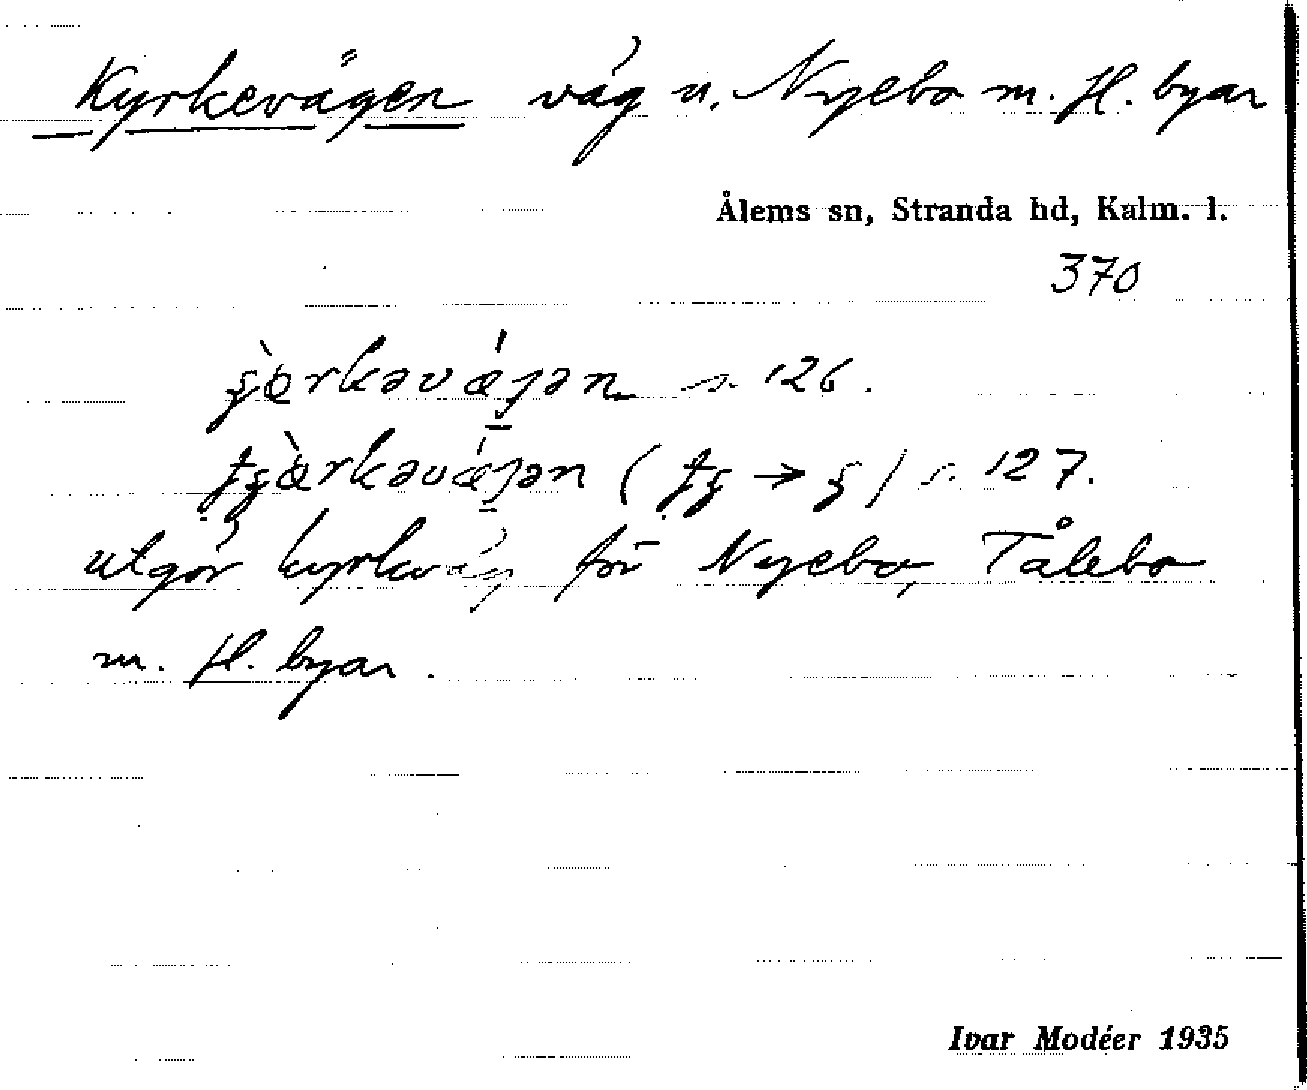 Kyrkevägen väg u. Nyebo m. fl. byar
Ålems sn, Stranda hd, Kalm. l.
370
s. 126.
s. 127.
utgör kyrkväg för Nyebo, Tålebo
m. fl. byar.
Ivar Modéer 1935